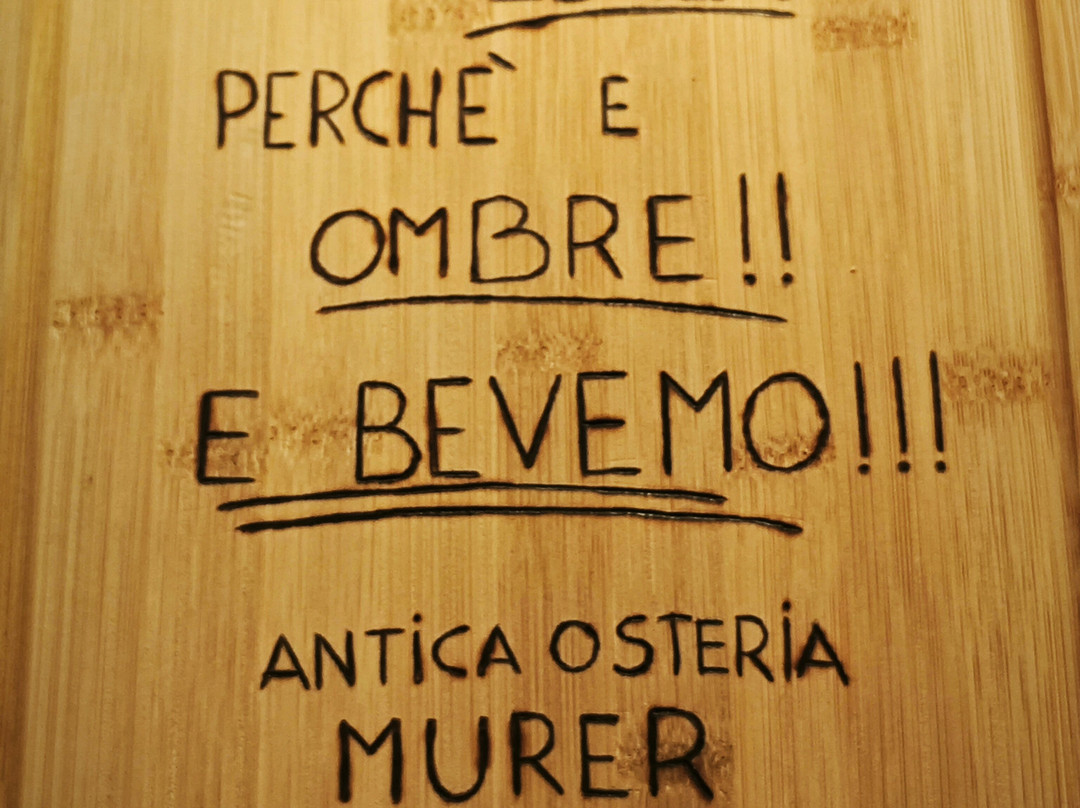 PERCHÈ E
OMBRE!!
E BEVEMO!!!
ANTiCA OSTERiA
MURER